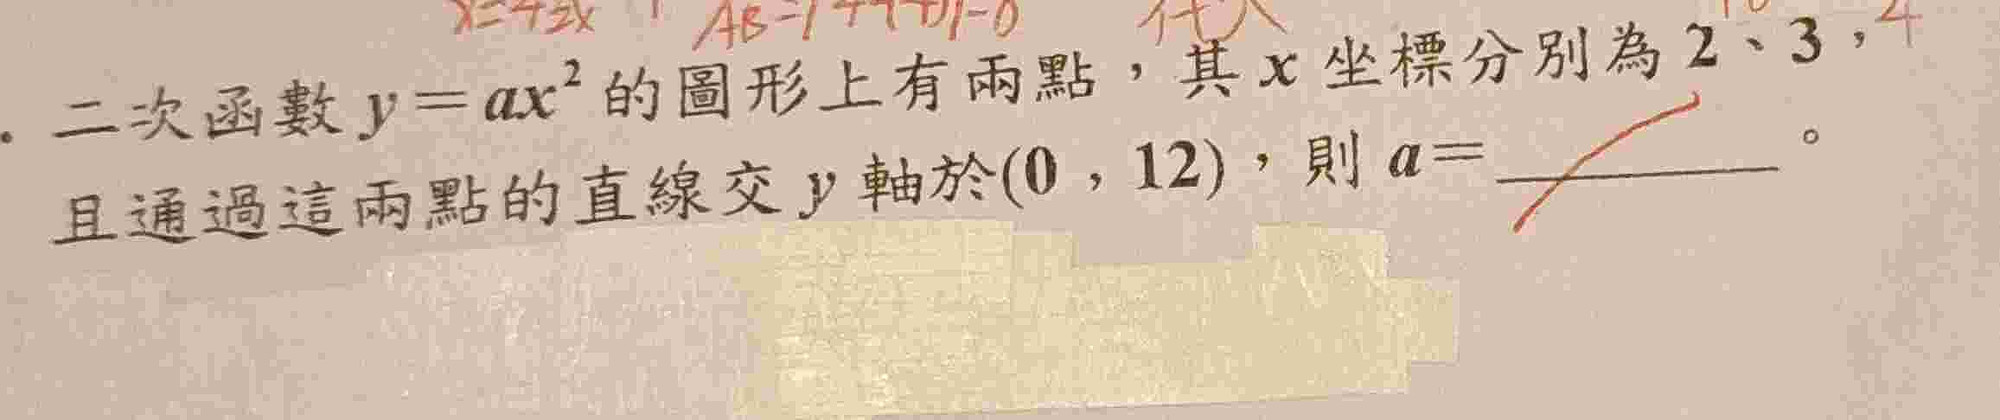 二次函數 y=ax² 的圖形上有兩點，其 x 坐標分別為 2、3，
且通過這兩點的直線交 y 軸於(0，12)，則 a=______。